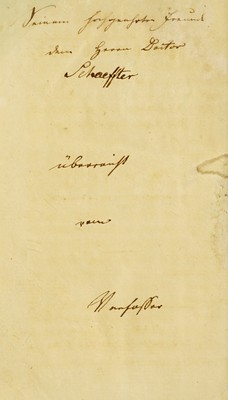 Seinem hochgeehrten Freunde
dem Herrn Doctor
Schaeffter
überreicht
vom
Verfasser